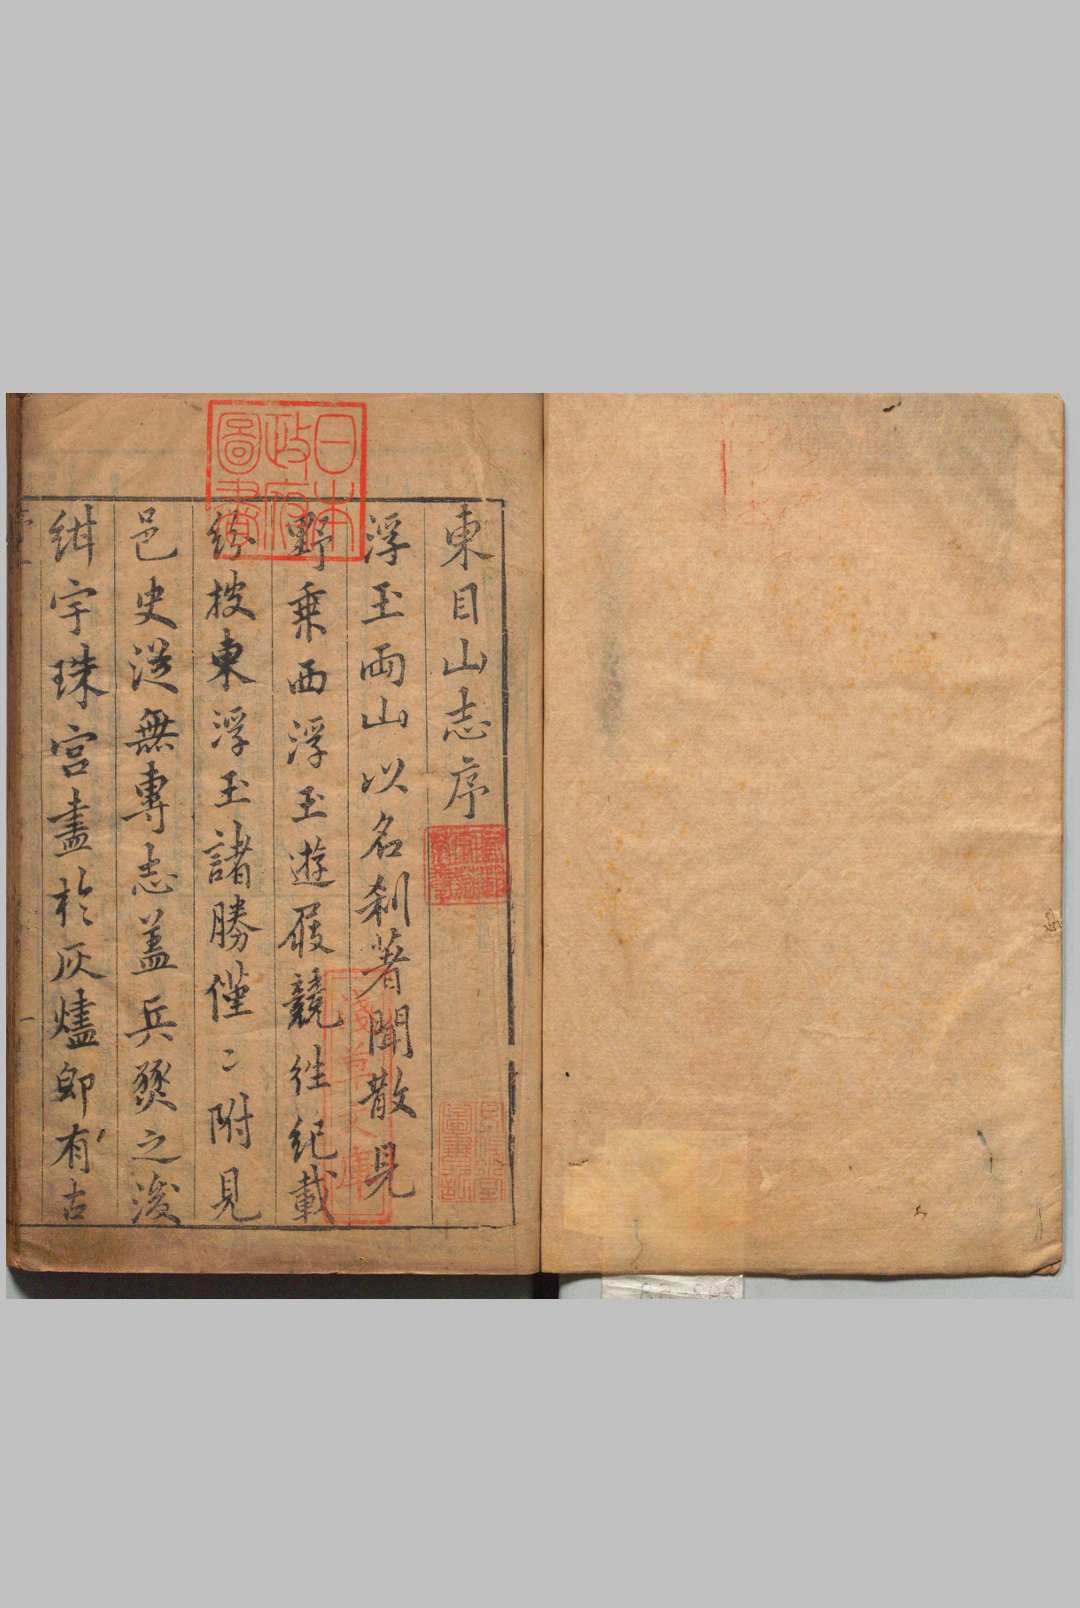 東目山志序
浮玉兩山以名刹著聞散見
野乗西浮玉遊屐競徃紀載
紛披東浮玉諸勝僅〻附見
邑史從無專志盖兵燹之後
紺宇珠宫盡於灰燼即有古
日本
政府
圖書
淺草文庫